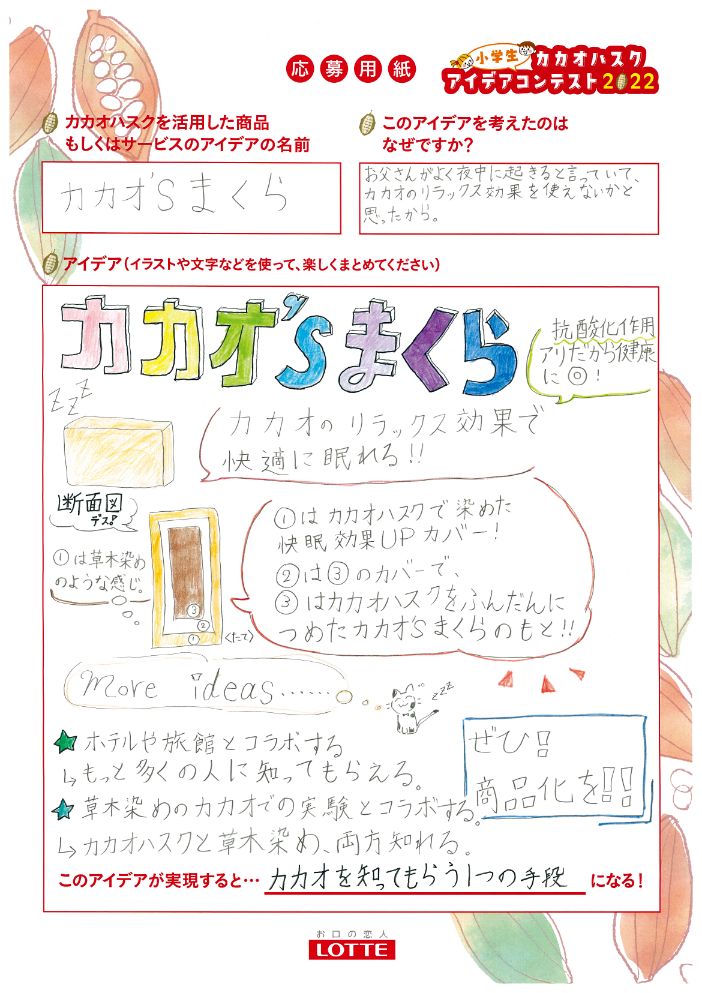 応募用紙
小学生
カカオハスク
アイデアコンテスト2022
カカオハスクを活用した商品
もしくはサービスのアイデアの名前
カカオ'Sまくら
このアイデアを考えたのは
なぜですか？
お父さんがよく夜中に起きると言っていて、
カカオのリラックス効果を使えないかと
思ったから。
アイデア（イラストや文字などを使って、楽しくまとめてください）
カカオ'sまくら
抗酸化作用
アリだから健康
に◎！
ZZZ
カカオのリラックス効果で
快適に眠れる!!
断面図
デス!
①は草木染め
のような感じ。
③
②
①
〈たて〉
①はカカオハスクで染めた
快眠効果UPカバー！
②は③のカバーで、
③はカカオハスクをふんだんに
つめたカカオ'Sまくらのもと!!
More ideas……
zzz
★ホテルや旅館とコラボする
↳もっと多くの人に知ってもらえる。
★草木染めのカカオでの実験とコラボする。
↳カカオハスクと草木染め、両方知れる。
ぜひ!
商品化を!!
このアイデアが実現すると… カカオを知ってもらう1つの手段 になる！
お口の恋人
LOTTE